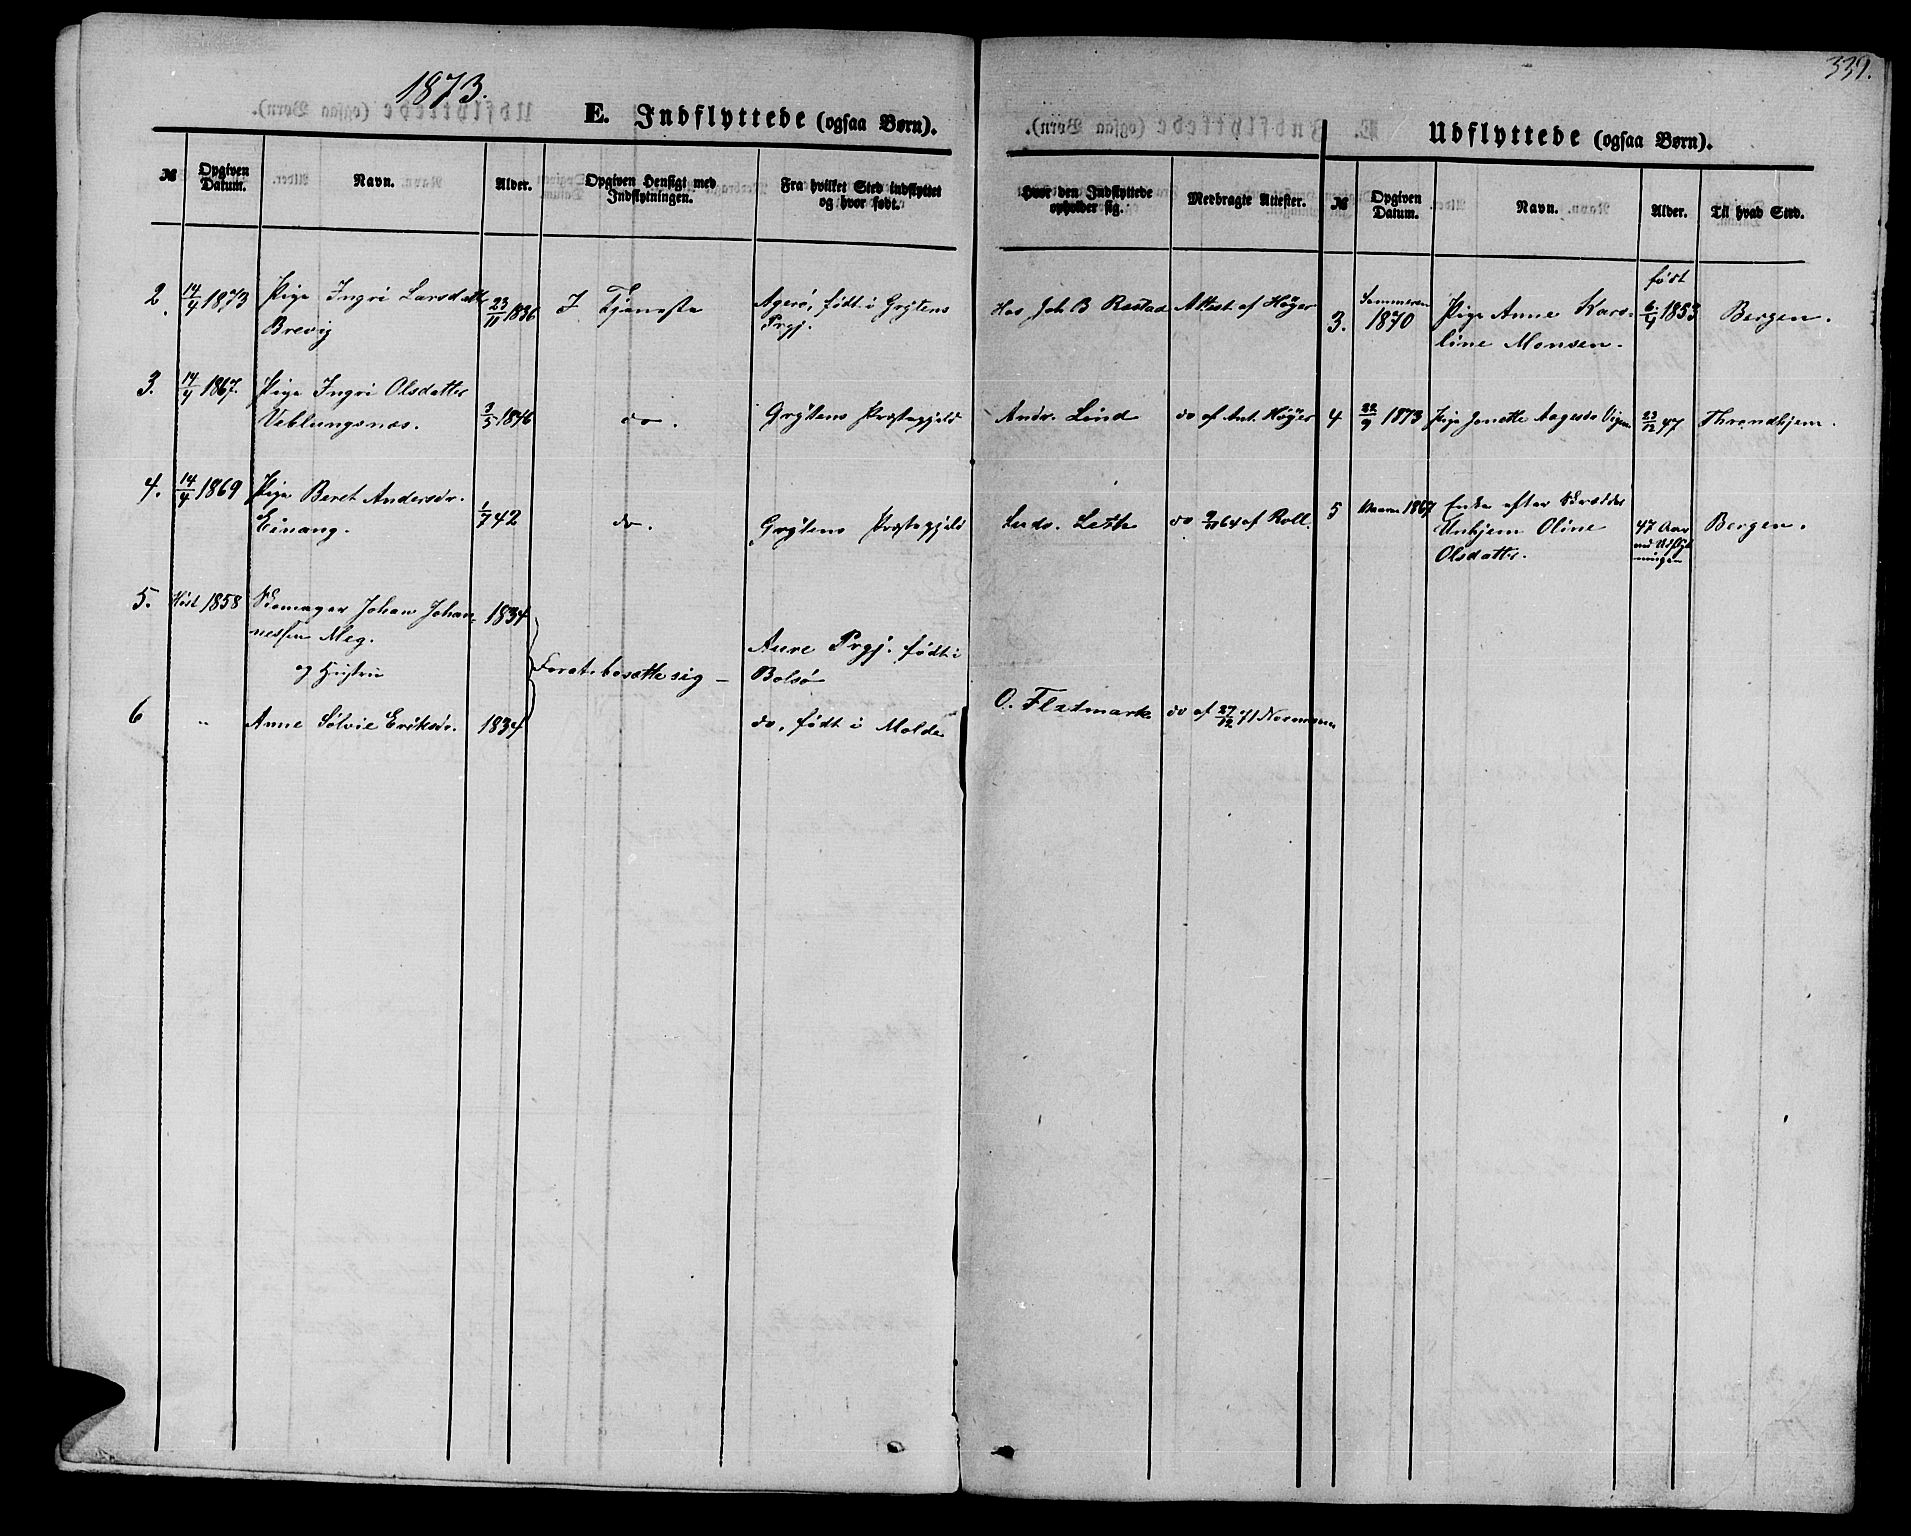 1873.
339.
E. Indflyttede (ogsaa Børn).
Udflyttede (ogsaa Børn).
№
Opgiven Datum.
Navn.
Alder.
Opgiven Hensigt med Indflytningen.
Fra hvilket Sted indflyttet og hvor født.
Hvor den Indflyttede opholder sig.
Medbragte Attester.
№
Opgiven Datum.
Navn.
Alder.
Til hvad Sted.
2. 14/4 1873 Pige Ingri Larsdatter 23/11 1836 I Tjeneste Agerø, født i Grytens Hos Joh B Rostad Attest af Høyer
Brevig Prgj.
3. 14/4 1867. Pige Ingri Olsdatter
Veblungsnæs. 3/5 1846 do. Grytens Præstegjeld Andr. Lind do af Ant. Høyer
4. 14/4 1869 Pige Beret Andersdr.
Einang. 1/7 42 do. Grytens Præstegjeld Ludv. Leth do 64 af Roll.
5. Høst 1858 Skomager Johan Johan- 1834
nessen Meg. Aure Prgj. født i
og Hustru For at bosætte sig – Bolsø
6 " Anne Sølvie Eriksdr. 1834 do, født i Molde O. Flatmark do af 27/12 71 Normann
født
3. Sommeren 1870 Pige Anne Kars- 6/4 1853 Bergen.
line Monsen.
4 22/9 1873 Pige Jonette Aagesdr 23/12 47 Throndhjem.
5 Vaaren 1867 Enke efter Skrædder
Unhjem Oline 47 Aar Bergen.
Olsdatter. ved Udflyt
ningen